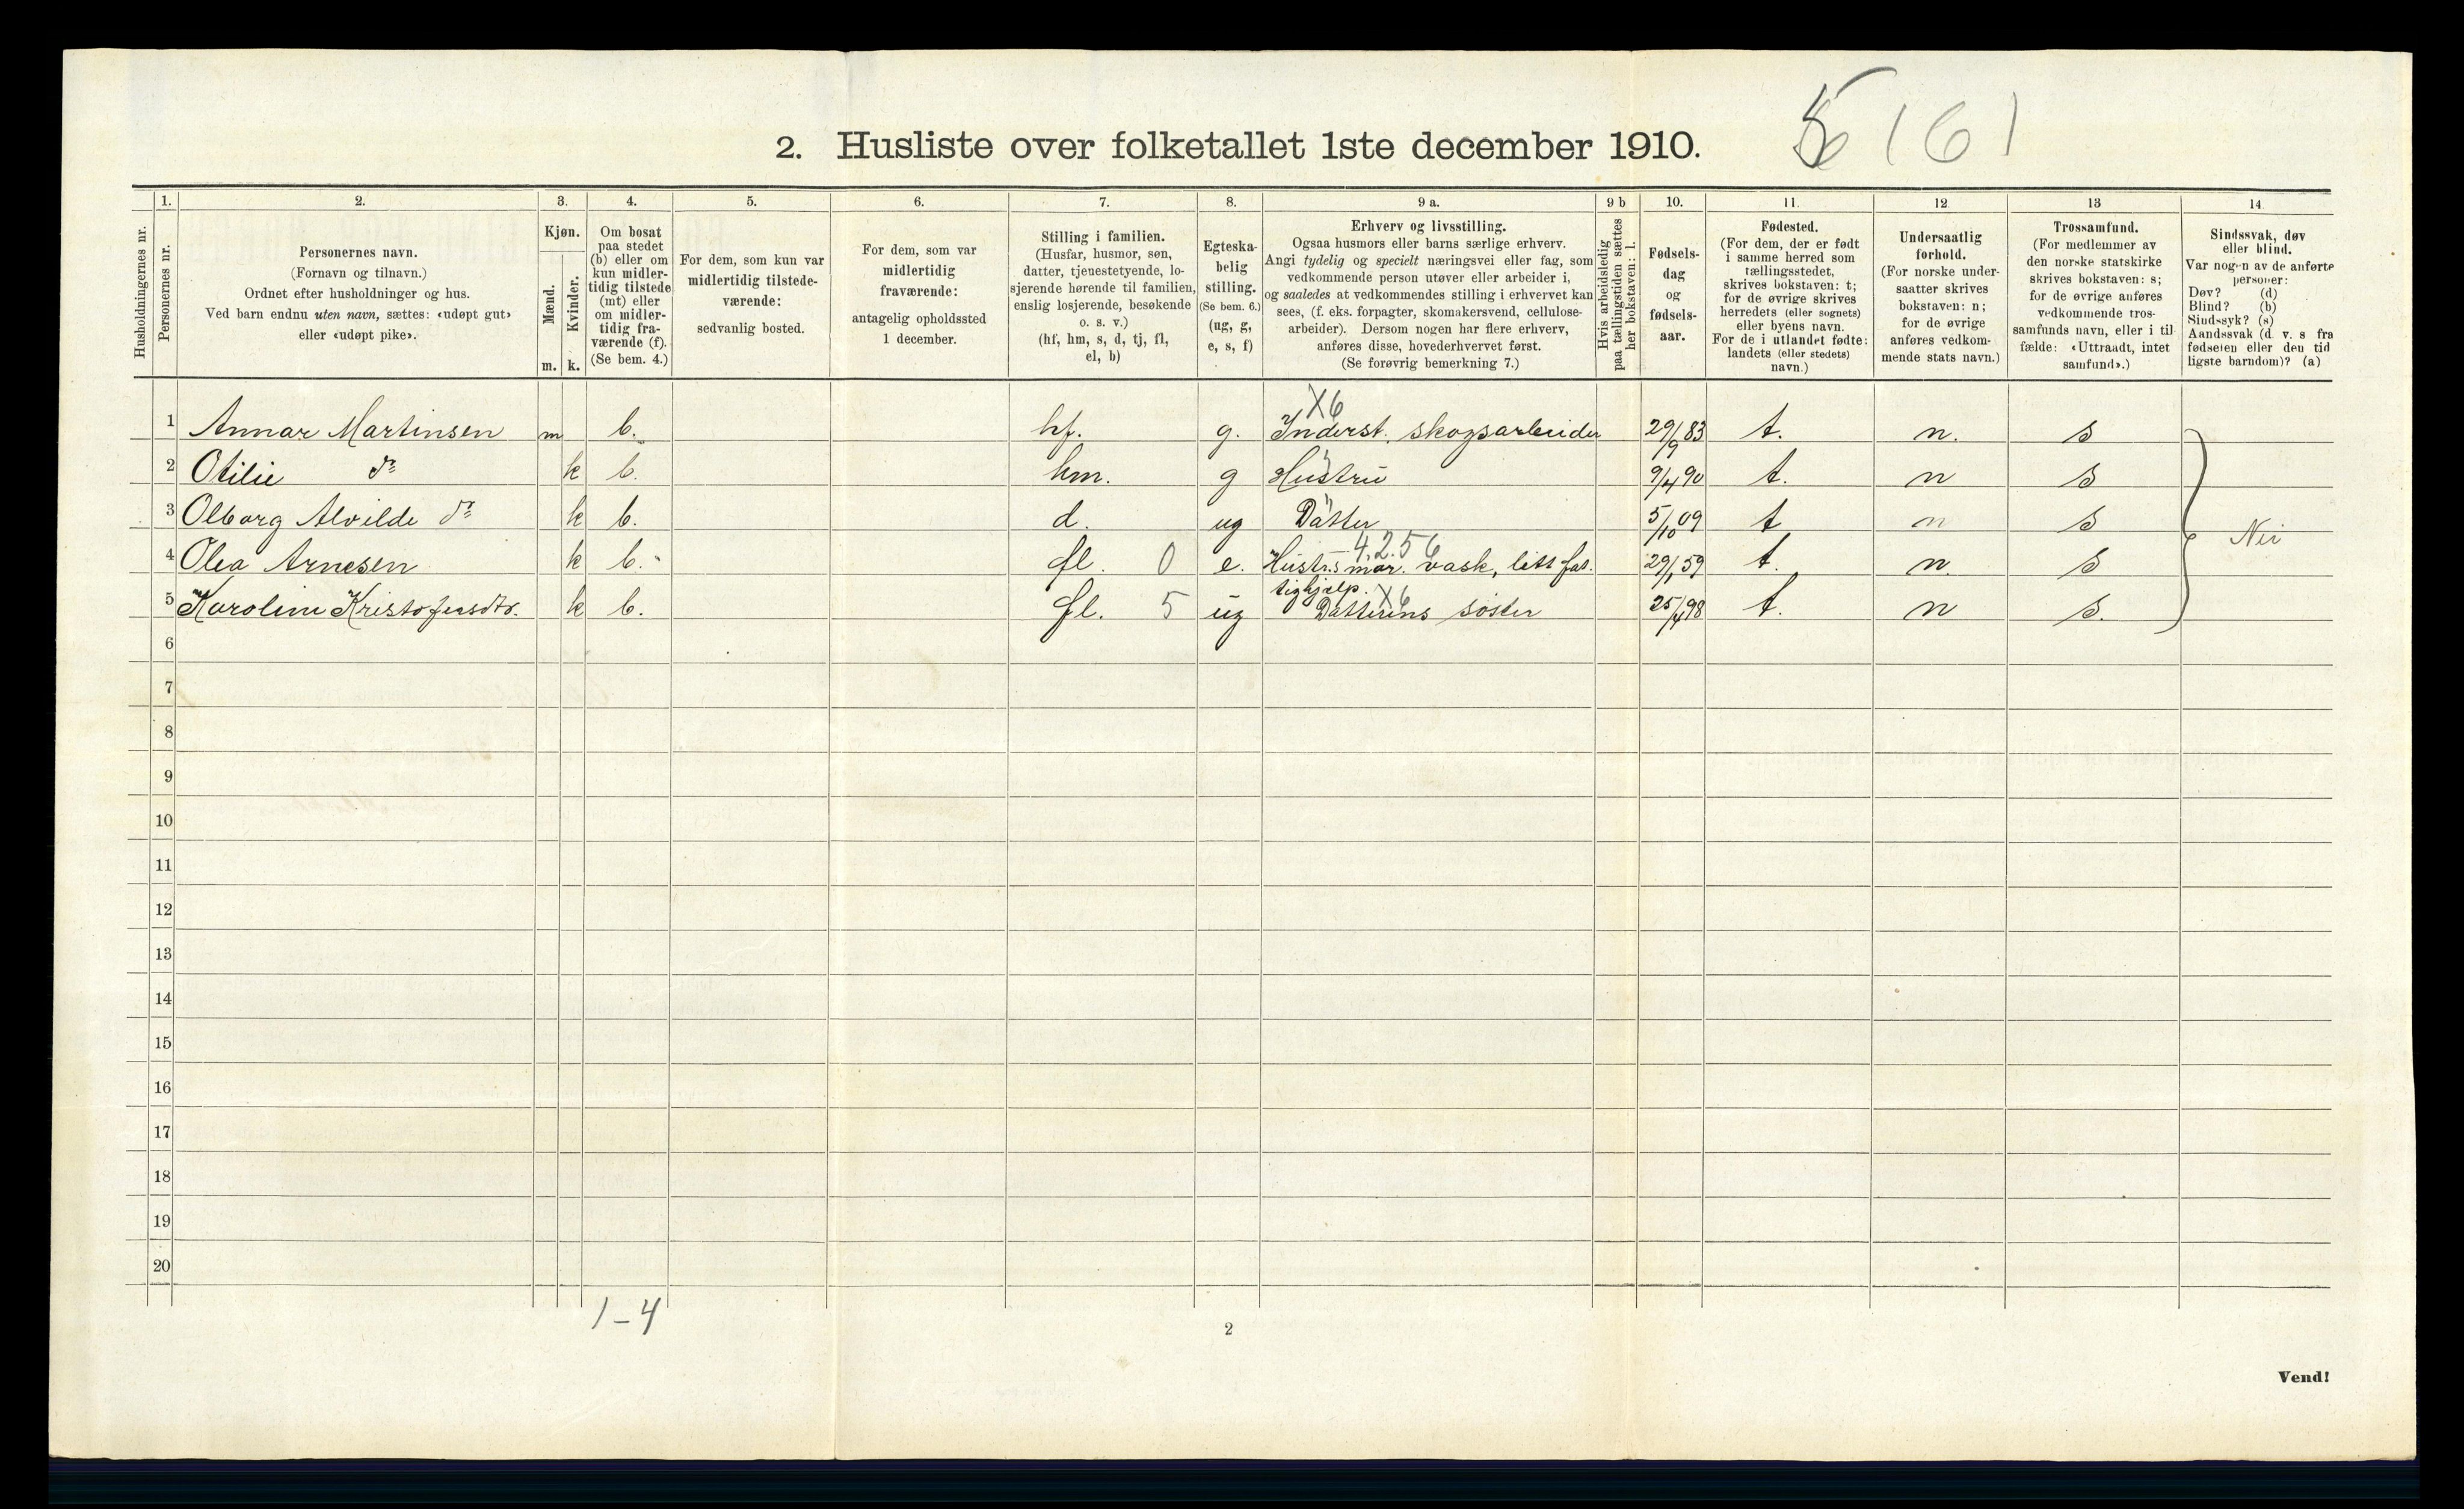 5161
2. Husliste over folketallet 1ste december 1910.
Husholdningernes nr.
1. Personernes nr.
2. Personernes navn.
(Fornavn og tilnavn.)
Ordnet efter husholdninger og hus.
Ved barn endnu uten navn, sættes: «udøpt gut»
eller «udøpt pike».
3. Kjøn.
Mænd. m.
Kvinder. k.
4. Om bosat
paa stedet
(b) eller om
kun midler-
tidig tilstede
(mt) eller
om midler-
tidig fra-
værende (f).
(Se bem. 4.)
5. For dem, som kun var
midlertidig tilstede-
værende:
sedvanlig bosted.
6. For dem, som var
midlertidig
fraværende:
antagelig opholdssted
1 december.
7. Stilling i familien.
(Husfar, husmor, søn,
datter, tjenestetyende, lo-
sjerende hørende til familien,
enslig losjerende, besøkende
o. s. v.)
(hf, hm, s, d, tj, fl,
el, b)
8. Egteska-
belig
stilling.
(Se bem. 6.)
(ug, g,
e, s, f)
9 a. Erhverv og livsstilling.
Ogsaa husmors eller barns særlige erhverv.
Angi tydelig og specielt næringsvei eller fag, som
vedkommende person utøver eller arbeider i,
og saaledes at vedkommendes stilling i erhvervet kan
sees, (f. eks. forpagter, skomakersvend, cellulose-
arbeider). Dersom nogen har flere erhverv,
anføres disse, hovederhvervet først.
(Se forøvrig bemerkning 7.)
9 b Hvis arbeidsledig
paa tællingstiden sættes
her bokstaven: l.
10. Fødsels-
dag
og
fødsels-
aar.
11. Fødested.
(For dem, der er født
i samme herred som
tællingsstedet,
skrives bokstaven: t;
for de øvrige skrives
herredets (eller sognets)
eller byens navn.
For de i utlandet fødte:
landets (eller stedets)
navn.)
12 Undersaatlig
forhold.
(For norske under-
saatter skrives
bokstaven: n;
for de øvrige
anføres vedkom-
mende stats navn.)
13 Trossamfund.
(For medlemmer av
den norske statskirke
skrives bokstaven: s;
for de øvrige anføres
vedkommende tros-
samfunds navn, eller i til
fælde: «Uttraadt, intet
samfund».)
14 Sindssvak, døv
eller blind.
Var nogen av de anførte
personer:
Døv? (d)
Blind? (b)
Sindssyk? (s)
Aandssvak (d. v. s fra
fødselen eller den tid
ligste barndom)? (a)
X6
1 Annar Martinsen m b. hf. g. Inderst, skogsarbeider 29/9 83 t. n. s
2 Otilie do k b. hm. g Hustru 9/4 90 t. n s
3 Olborg Alvilde do k b. d. ug Datter 5/10 09 t n s
Nei
4.2.56
4 Olea Arnesen k b. fl. 0 e. Hustr.s mor. vask, litt fat- 29/1 59 t. n s
tighjælp. X6
5 Karoline Kristofersdtr. k b. fl. 5 ug Datterens søster 25/4 98 t. n s.
6
7
8
9
10
11
12
13
14
15
16
17
18
19
20
1-4
2
Vend!